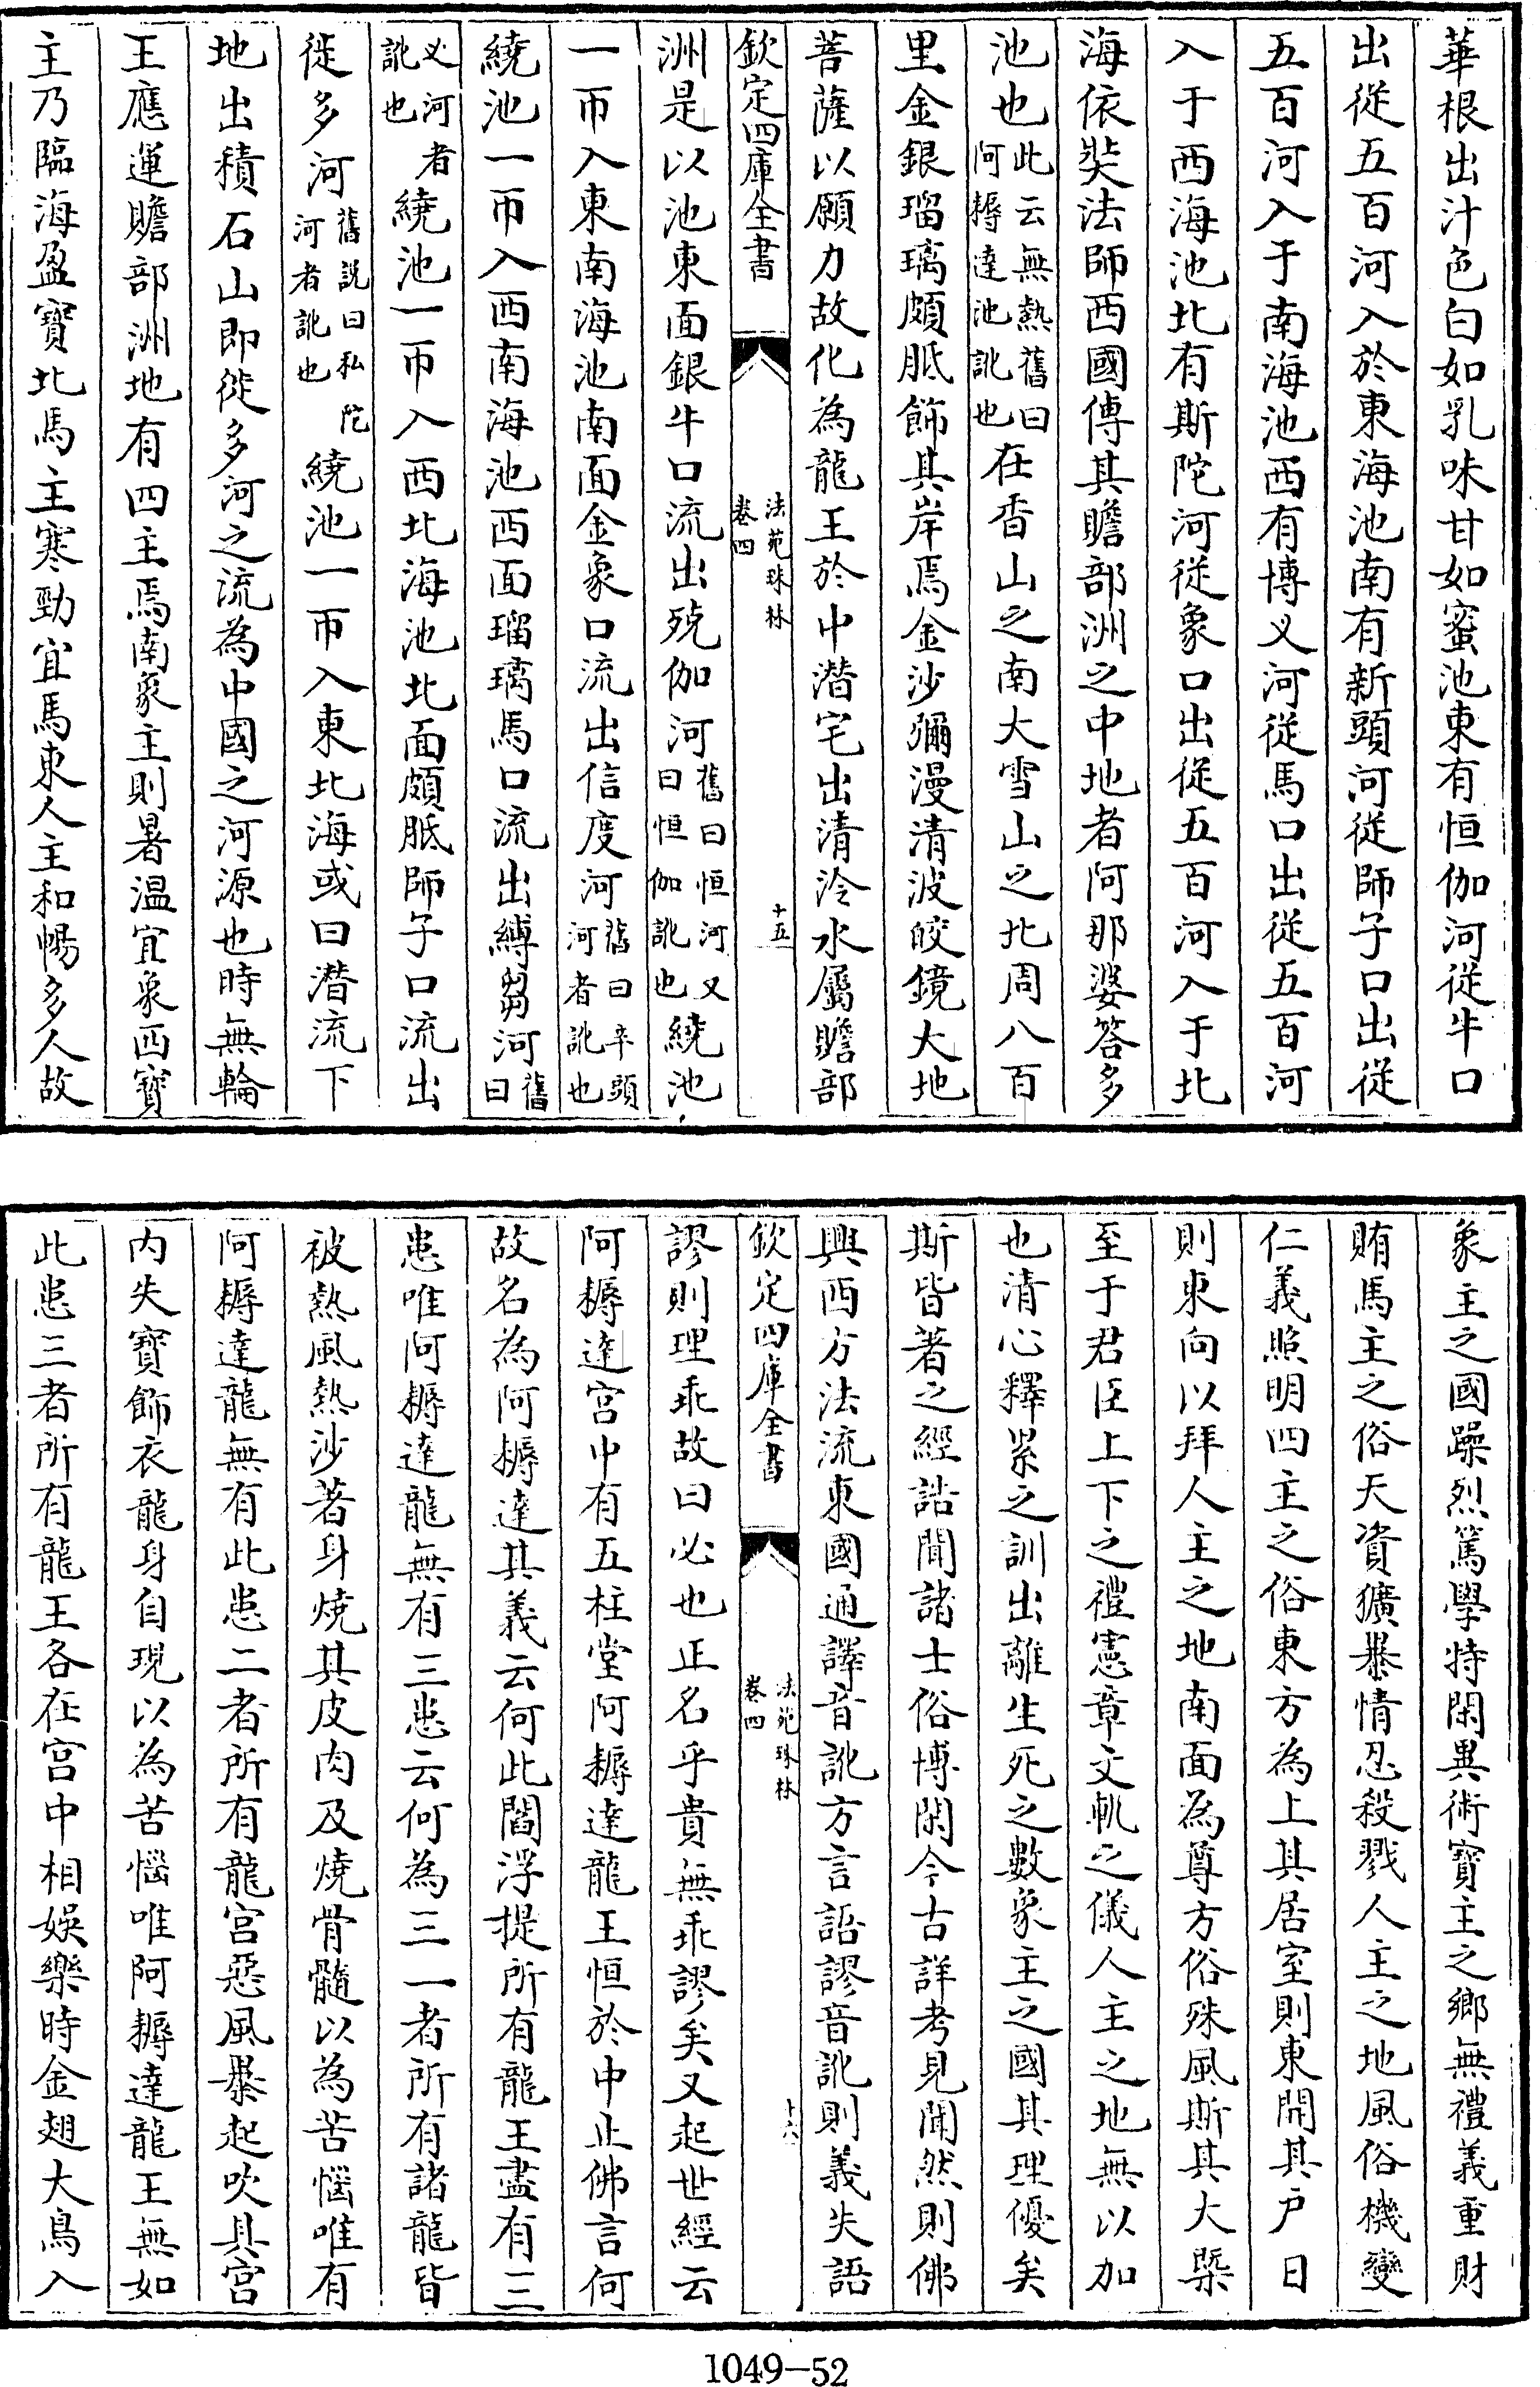 華根出汁色白如乳味甘如蜜池東有恒伽河從牛口
出從五百河入於東海池南有新頭河從師子口出從
五百河入于南海池西有博叉河從馬口出從五百河
入于西海池北有斯陀河從象口出從五百河入于北
海依奘法師西國傳其贍部洲之中地者阿那婆答多
池也此云無熱舊曰阿耨達池訛也在香山之南大雪山之北周八百
里金銀瑠璃頗胝飾其岸焉金沙彌漫清波皎鏡大地
菩薩以願力故化為龍王於中潛宅出清泠水屬贍部
欽定四庫全書 法苑珠林卷四 十五
洲是以池東面銀牛口流出殑伽河舊曰恒河又曰恒伽訛也繞池
一帀入東南海池南面金象口流出信度河舊曰辛頭河者訛也
繞池一帀入西南海池西面瑠璃馬口流出縛芻河舊曰
叉河者訛也繞池一帀入西北海池北面頗胝師子口流出
徙多河舊說曰私陀河者訛也繞池一帀入東北海或曰潛流下
地出積石山即徙多河之流為中國之河源也時無輪
王應運贍部洲地有四主焉南象主則暑溫宜象西寶
主乃臨海盈寶北馬主寒勁宜馬東人主和暢多人故
象主之國躁烈篤學特閑異術寶主之鄉無禮義重財
賄馬主之俗天資獷暴情忍殺戮人主之地風俗機變
仁義照明四主之俗東方為上其居室則東開其戶日
則東向以拜人主之地南面為尊方俗殊風斯其大槩
至于君臣上下之禮憲章文軌之儀人主之地無以加
也清心釋累之訓出離生死之數象主之國其理優矣
斯皆著之經誥聞諸士俗博閑今古詳考見聞然則佛
興西方法流東國通譯音訛方言語謬音訛則義失語
欽定四庫全書 法苑珠林卷四 十六
謬則理乖故曰必也正名乎貴無乖謬矣又起世經云
阿耨達宮中有五柱堂阿耨達龍王恒於中止佛言何
故名為阿耨達其義云何此閻浮提所有龍王盡有三
患唯阿耨達龍無有三患云何為三一者所有諸龍皆
被熱風熱沙著身燒其皮肉及燒骨髓以為苦惱唯有
阿耨達龍無有此患二者所有龍宮惡風暴起吹其宮
內失寶飾衣龍身自現以為苦惱唯阿耨達龍王無如
此患三者所有龍王各在宮中相娛樂時金翅大鳥入
1049-52